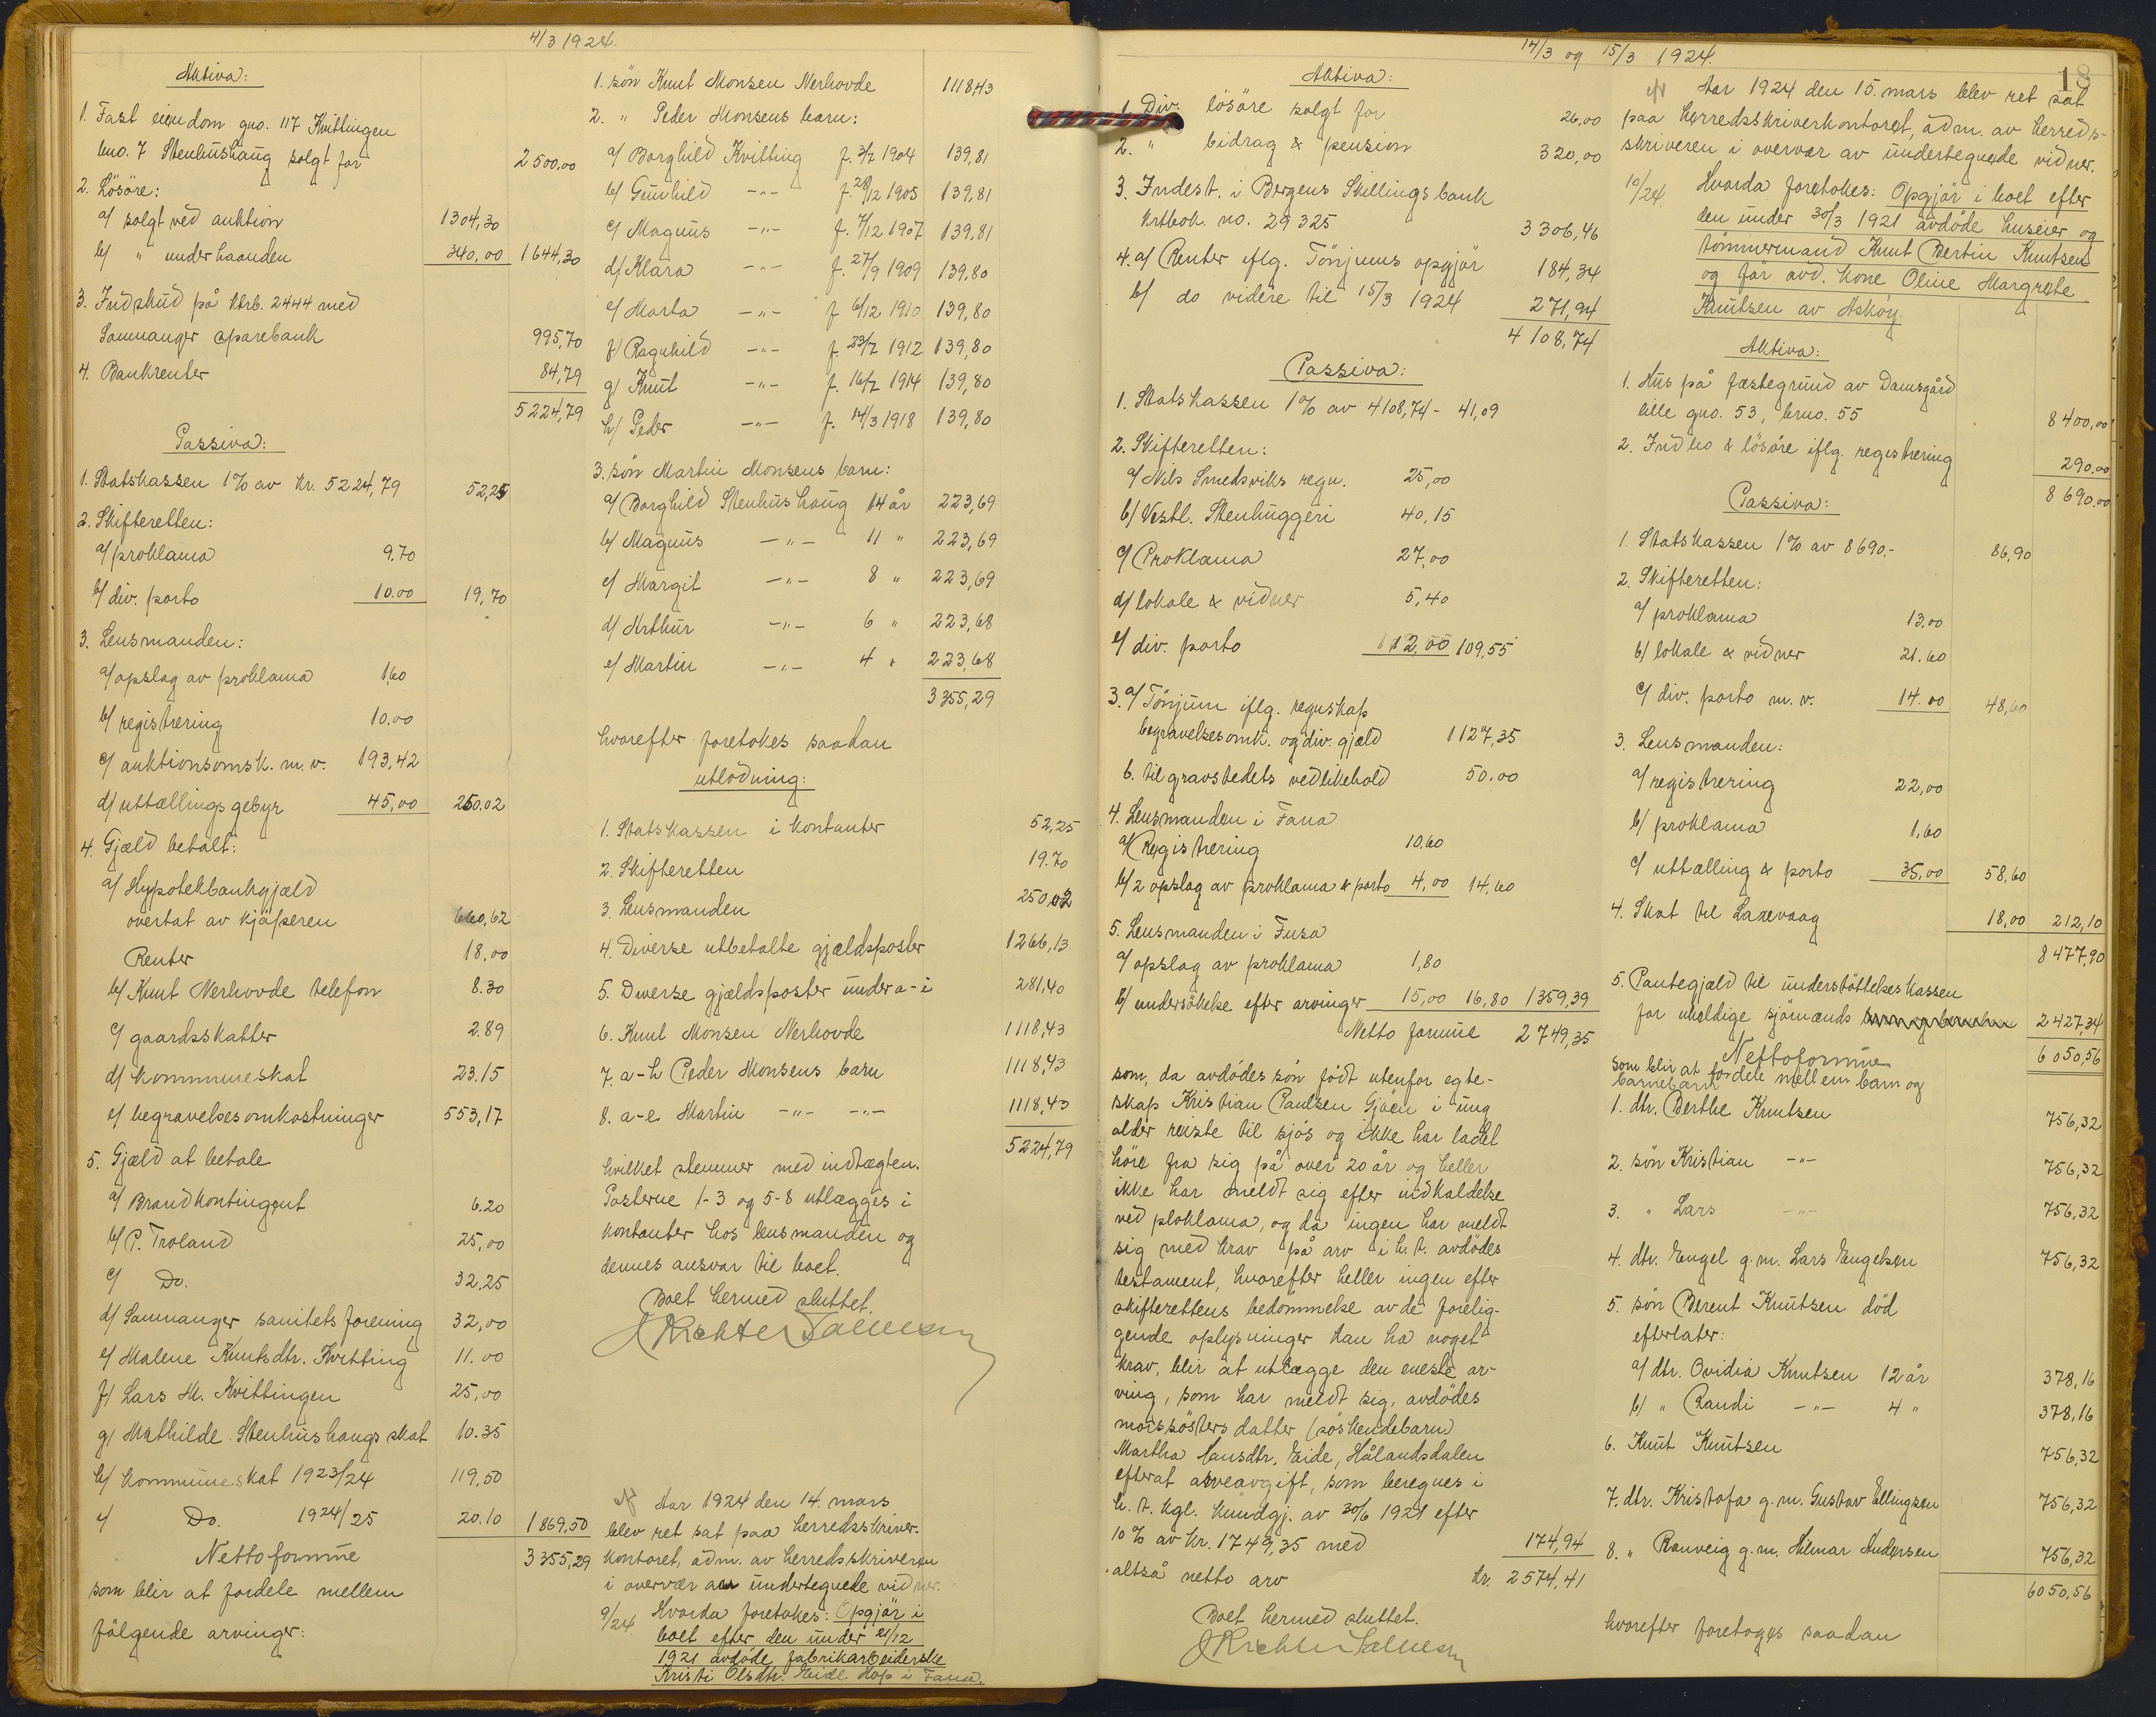 4/3 1924.
Aktiva:
1. Fast eiendom gno. 117 Kvittingen
bno. 7 Stenhushaug solgt for 2500,00
2. Lösöre:
a/ solgt ved auktion 1304,30
b/ " underhaanden 340,00 1644,30
3. Indskud på ktrb. 2444 med
Samnanger sparebank 995,70
4. Bankrenter 84,79
5224,79
Passiva:
1. Statskassen 1% av kr. 5224,79 52,25
2. Skifteretten:
a/ proklama 9.70
b/ div. porto 10.00 19,70
3. Lensmanden:
a/ opslag av proklama 1,60
b/ registrering 10.00
c/ auktionsomsk. m.v. 193,42
d/ uttællingsgebyr 45,00 250.02
4. Gjæld betalt:
a/ Hypotekbankgjæld
overtat av kjöperen 660,62
Renter 18,00
b/ Knut Nerhovde telefon 8.30
c/ gaardsskatter 2.89
d/ kommuneskat 23.15
e/ begravelsesomkostninger 553,17
5. Gjæld at betale
a/ Brandkontingent 6.20
b/ P. Troland 25,00
c/ Do. 32,25
d/ Samnanger sanitetsforening 32,00
e/ Malene Knutsdtr. Kvitting 11.00
f/ Lars M. Kvittingen 25,00
g/ Mathilde Stenhushaugs skat 10.35
h/ Kommuneskat 1923/24 119,50
i/ Do. 1924/25 20.10 1869.50
Nettoformue 3355,29
som blir at fordele mellem
fölgende arvinger:
1. sön Knut Monsen Nerhovde 1118,43
2. " Peder Monsens barn:
a/ Borghild Kvitting f. 3/7 1904 139,81
b/ Gunhild -"- f. 28/12 1905 139,81
c/ Magnus -"- f. 7/12 1907 139,81
d/ Klara -"- f. 27/9 1909 139,80
e/ Marta -"- f 6/12 1910 139,80
f/ Ragnhild -"- f. 23/7 1912 139,80
g/ Knut -"- f. 16/7 1914 139,80
h/ Peder -"- f. 14/3 1918 139,80
3. sön Martin Monsens barn:
a/ Borghild Stenhushaug 14 år 223,69
b/ Magnus -"- 11 " 223,69
c/ Margit -"- 8 " 223,69
d/ Arthur -"- 6 " 223,68
e/ Martin -"- 4 " 223,68
3355,29
hvorefter foretokes saadan
utlodning:
1. Statskassen i kontanter 52,25
2. Skifteretten 19.70
3. Lensmanden 250,02
4. Diverse utbetalte gjældsposter 1266,13
5. Diverse gjældsposter under a-i 281,40
6. Knut Monsen Nerhovde 1118,43
7. a-h Peder Monsens barn 1118,43
8. a-e Martin -"- -"- 1118,43
5224,79
hvilket stemmer med indtægten.
Posterne 1-3 og 5-8 utlægges i
kontanter hos lensmanden og
dennes ansvar til boet.
Boet hermed sluttet.
Aar 1924 den 14. mars
blev ret sat paa herredsskriver-
kontoret, adm. av herredsskriveren
i overvær av undertegnede vidner.
9/24. Hvorda foretokes: Opgjör i
boet efter den under 21/12
1921 avdöde fabrikarbeiderske
Kristi Olsdtr. Eide Hop i Fana.
14/3 og 15/3 1924.
18
Aktiva:
1. Div. lösöre solgt for 26,00
2. " bidrag & pension 320,00
3. Indest. i Bergens Skillingsbank
ktrbok. no. 29325 3306,46
4. a/ Renter iflg. Tönjums opgjör 184,34
b/ do videre til 15/3 1924 271,94
4108,74
Passiva:
1. Statskassen 1% av 4108,74 - 41,09
2. Skifteretten:
a/ Nils Smedsviks regn. 25,00
b/ Vestl. Stenhuggeri 40,15
c/ Proklama 27,00
d/ lokale & vidner 5,40
e/ div. porto 12,00 109,55
3. a/ Tönjum iflg. regnskap
begravelsesomk. og div. gjæld 1127,35
b. til gravstedets vedlikehold 50.00
4. Lensmanden i Fana
a/ Registrering 10,60
b/ 2 opslag av proklama & porto 4,00 14,60
5. Lensmanden i Fusa
a/ opslag av proklama 1,80
b/ undersökelse efter arvinger 15,00 16,80 1359,39
Netto formue 2749,35
som, da avdödes sön födt utenfor egte-
skap Kristian Paulsen Gjöen i ung
alder reiste til sjös og ikke har ladet
höre fra sig på over 20 år og heller
ikke har meldt sig efter indkaldelse
ved ploklama, og da ingen har meldt
sig med krav på arv i h.t. avdödes
testament, hvorefter heller ingen efter
skifterettens bedömmelse av de forelig-
gende oplysninger kan ha noget
krav, blir at utlægge den eneste ar-
ving, som har meldt sig, avdödes
morssösters datter (söskendebarn)
Martha Hansdtr. Eide, Hålandsdalen
efterat arveavgift, som beregnes i
h.t. kgl. kundgj. av 30/6 1921 efter
10% av kr. 1749,35 med 174,94
altså netto arv kr. 2574,41
Boet hermed sluttet.
Aar 1924 den 15. mars blev ret sat
paa herredsskriverkontoret, adm. av herreds-
skriveren i overvær av undertegnede vidner.
10/24. Hvorda foretokes: Opgjör i boet efter
den under 30/3 1921 avdöde huseier og
tömmermand Knut Bertin Knutsen
og för avd. kone Oline Margrete
Knutsen av Askøy.
Aktiva:
1. Hus på fæstegrund av Damsgård
lille gno. 53, bruo. 55 8400,00
2. Indbo & lösöre iflg. registrering 290.00
8690.00
Passiva:
1. Statskassen 1% av 8690.- 86,90
2. Skifteretten:
a/ proklama 13.00
b/ lokale & vidner 21.60
c/ div. porto m.v. 14.00 48,60
3. Lensmanden:
a/ registrering 22,00
b/ proklama 1,60
c/ uttælling & porto 35,00 58,60
4. Skat til Laxevaag 18,00 212,10
8477,90
5. Pantegjæld til understöttelseskassen
for uheldige sjömænds 2427,34
Nettoformue 6050,56
som blir at fordele mellem barn og
barnebarn
1. dtr. Berthe Knutsen 756,32
2. sön Kristian -"- 756,32
3. " Lars -"- 756,32
4. dtr. Engel g.m. Lars Engelsen 756,32
5. sön Berent Knutsen död
efterlater:
a/ dtr. Ovidia Knutsen 12 år 378,16
b/ " Randi -"- 4 " 378,16
6. Knut Knutsen 756,32
7. dtr. Kristofa g.m. Gustav Ellingsen 756,32
8. " Ranveig g.m. Hilmar Andersen 756,32
6050,56
hvorefter foretages saadan